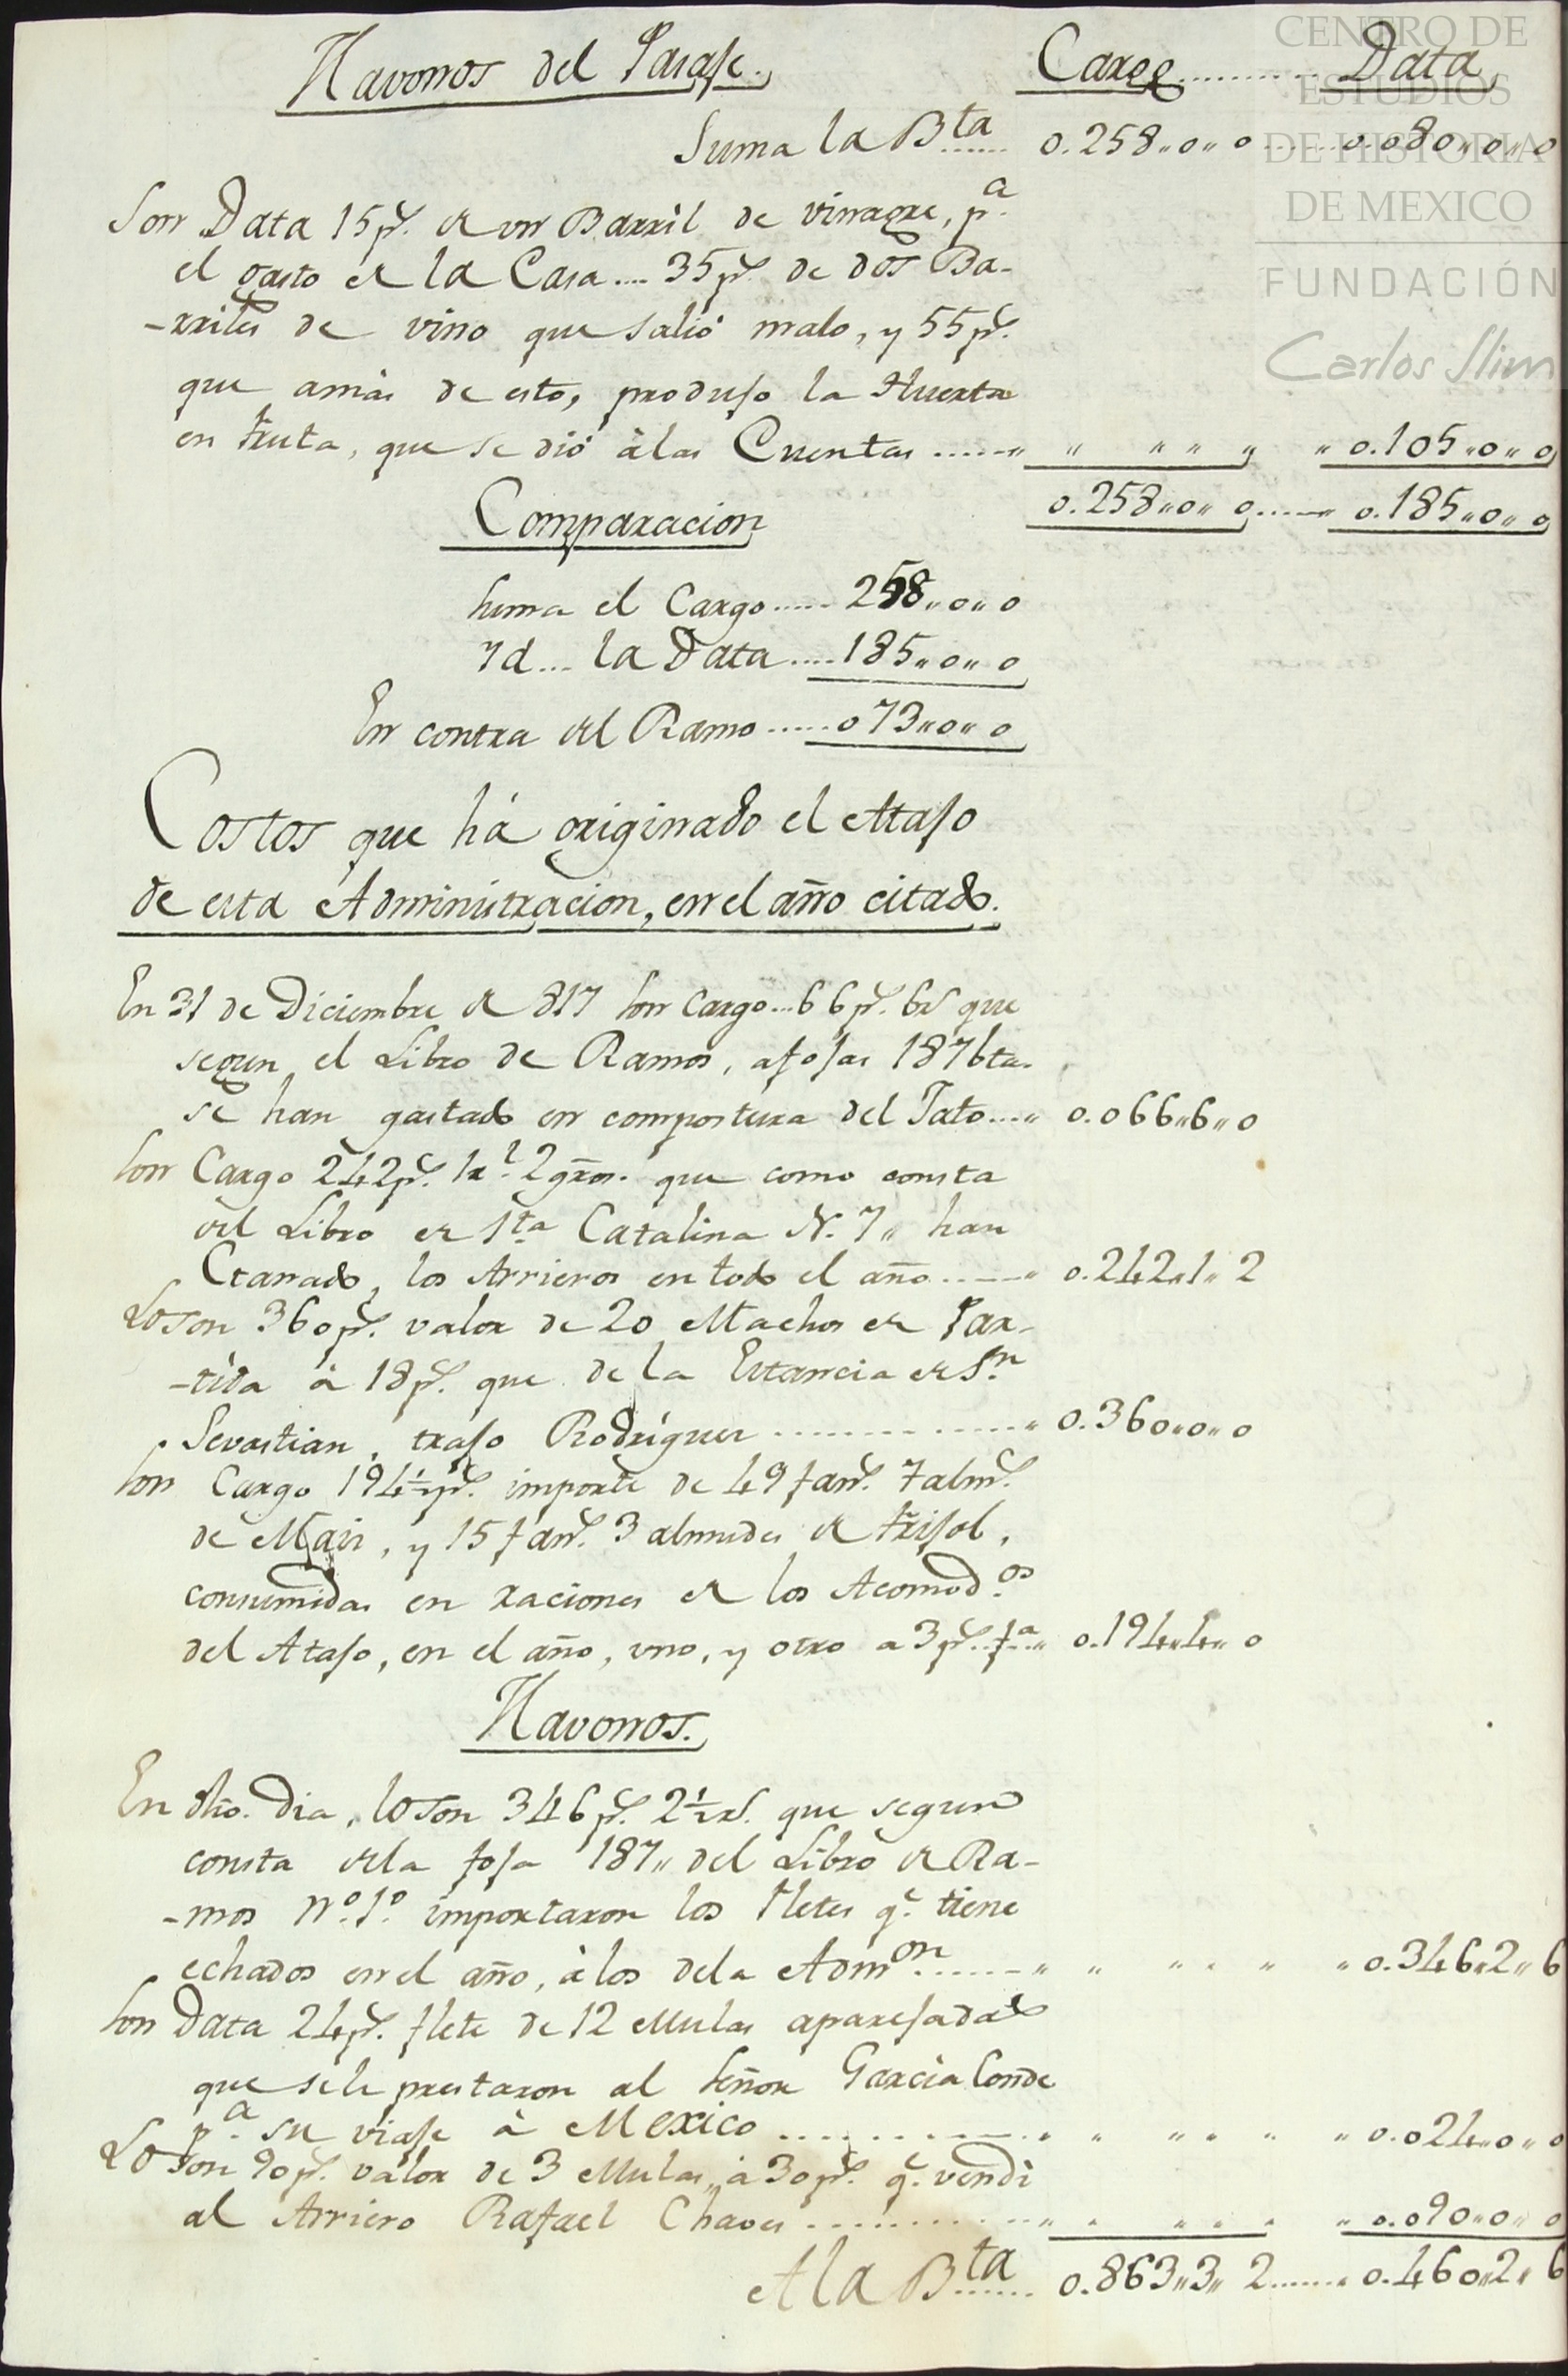 Havonos del Parage. Cargo .......... Data
Suma la B.ta ...... 0.258,,0,,0 ...... 0.080,,0,,0
Son Data 15 p.s de un Barril de vinagre, p.a
el gasto de la Casa .... 35 p.s de dos Ba-
-rriles de vino que salió malo, y 55 p.s
que amàs de esto, produjo la Huerta
en fruta, que se dió à las Cuentas ...... ,, ,, ,, ,, ,, ,, 0.105,,0,,0
0.258,,0,,0 ...... 0.185,,0,,0
Comparacion
Suma el Cargo ...... 258,,0,,0
Yd ... la Data ..... 185,,0,,0
En contra del Ramo ...... 073,,0,,0
Costos que há originado el Atajo
de esta Administracion, en el año citado.
En 31 de Diciembre de 817 son Cargo ... 66 p.s 6 r.s que
segun el Libro de Ramos, afojas 187 bta.
se han gastado en compostura del Jato .... ,, 0.066,,6,,0
Son Cargo 242 p.s 1 r.l 2 grãos. que como consta
del Libro de S.ta Catalina N. 7,, han
Ganado, los Arrieros en todo el año ....... ,, 0.242,,1,,2
Lo son 360 p.s valor de 20 Machos de Par-
-tida à 18 p.s que de la Estancia de S.n
Sevastian, trajo Rodriguez ............... ,, 0.360,,0,,0
Son Cargo 194½ p.s importe de 49 fan.s 7 alm.s
de Mais, y 15 fan.s 3 almudes de frisol,
consumidas en raciones de los Acomod.os
del Atajo, en el año, uno, y otro a 3 p.s f.a ... ,, 0.194,,4,,0
Havonos.
En dho. dia, lo son 346 p.s 2½ r.s que segun
consta dela foja 187,, del Libro de Ra-
-mos N.o 1.o importaron los fletes q.e tiene
echados en el año, à los dela Adm.on ....... ,, ,, ,, ,, ,, ,, 0.346,,2,,6
Son Data 24 p.s flete de 12 Mulas aparejadas
que se le prestaron al Señor Garcia Conde
p.a su viaje à Mexico .............. ,, ,, ,, ,, ,, ,, 0.024,,0,,0
Lo son 90 p.s valor de 3 Mulas, à 30 p.s q.e vendi
al Arriero Rafael Chaves .............. ,, ,, ,, ,, ,, ,, 0.090,,0,,0
A la B.ta ...... 0.863,,3,,2 ....... 0.460,,2,,6
CENTRO DE
ESTUDIOS
DE HISTORIA
DE MEXICO
FUNDACIÓN
Carlos Slim